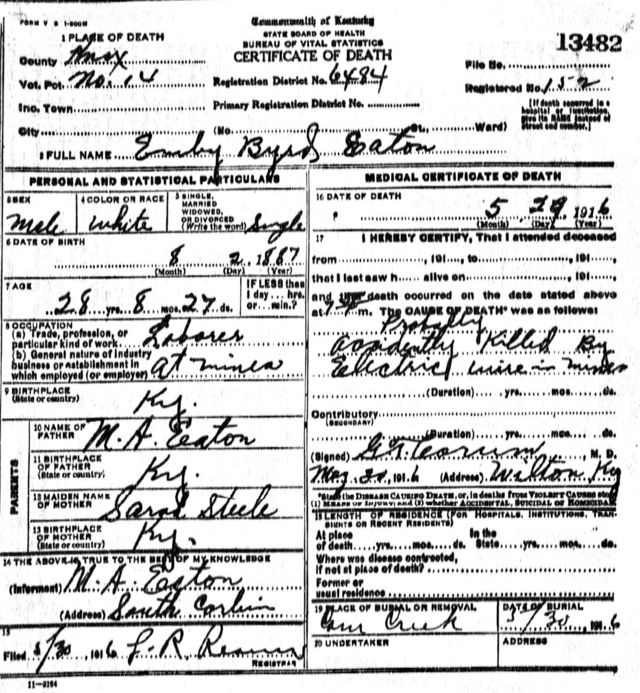 FORM V S 1-500M
Commonwealth of Kentucky
STATE BOARD OF HEALTH
BUREAU OF VITAL STATISTICS
CERTIFICATE OF DEATH
1 PLACE OF DEATH
County Knox
Vot. Pct. No. 14
Registration District No. 6484
Inc. Town
Primary Registration District No.
City (No. St., Ward)
File No. 13482
Registered No. 152
[If death occurred in a hospital or institution, give its NAME instead of street and number.]
2 FULL NAME Emby Byrd Eaton
PERSONAL AND STATISTICAL PARTICULARS
3 SEX
Male
4 COLOR OR RACE
White
5 SINGLE, MARRIED WIDOWED, OR DIVORCED (Write the word) Single
6 DATE OF BIRTH
8 2 1887
(Month) (Day) (Year)
7 AGE
28 yrs. 8 mos. 27 ds.
IF LESS than 1 day... hrs. or...min.?
8 OCCUPATION
(a) Trade, profession, or particular kind of work Laborer
(b) General nature of industry business or establishment in which employed (or employer) At mines
9 BIRTHPLACE
(State or country) Ky.
PARENTS
10 NAME OF FATHER M. A. Eaton
11 BIRTHPLACE OF FATHER (State or country) Ky.
12 MAIDEN NAME OF MOTHER Sarah Steele
13 BIRTHPLACE OF MOTHER (State or country) Ky.
14 THE ABOVE IS TRUE TO THE BEST OF MY KNOWLEDGE
(Informant) M. A. Eaton
(Address) South Corbin
15
Filed 5/30, 1916 J. R.
REGISTRAR
11-3184
MEDICAL CERTIFICATE OF DEATH
16 DATE OF DEATH
5 29 1916
(Month) (Day) (Year)
17 I HEREBY CERTIFY, That I attended deceased
from, 191, to, 191,
that I last saw h alive on, 191,
and that death occurred on the date stated above
at M. The CAUSE OF DEATH* was as follows:
Probably
accidently Killed By
Electric wire in mines
(Duration) yrs. mos. ds.
Contributory
(SECONDARY)
(Duration) yrs. mos. ds.
(Signed) M. D.
May 30, 1916 (Address) Wilton Ky
*State the DISEASE CAUSING DEATH, or, in deaths from VIOLENT CAUSES state (1) MEANS OF INJURY; and (2) whether ACCIDENTAL, SUICIDAL OR HOMICIDAL
18 LENGTH OF RESIDENCE (FOR HOSPITALS, INSTITUTIONS, TRANSIENTS OR RECENT RESIDENTS)
At place of death yrs. mos. ds. In the State yrs. mos. ds.
Where was disease contracted,
if not at place of death?
Former or
usual residence
19 PLACE OF BURIAL OR REMOVAL
Creek
DATE OF BURIAL
5/30, 1916
20 UNDERTAKER
ADDRESS